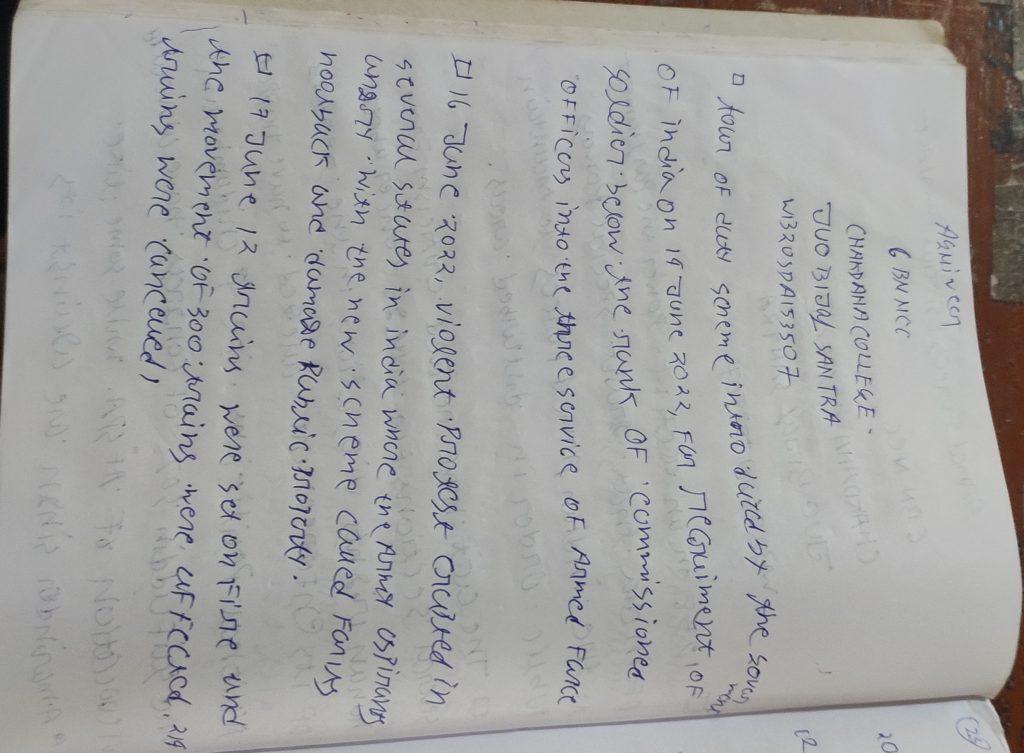 Agniveer
6 BN NCC
CHAPADANGA COLLEGE.
JUO BIJAY SANTRA
WB20SDA153507
□ tour of duty scheme introduced by the Govern
ment
of india on 14 June 2022, For recruiment of
soldier below the rank of commissioned
officers into the three service of Armed Force
□ 16 June 2022, violent Protest erupted in
several states in india where the Army aspirants
angry with the new scheme called For its
roolback and damage Public Property.
□ 17 June 12 trains were set on Fire and
the movement of 300 trains were affected, 214
trains were canceled,
(29)
20
12